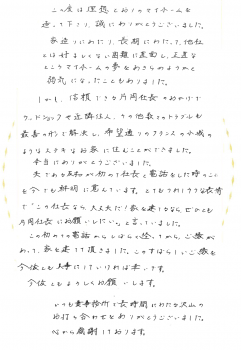 この度は理想どおりのマイホームを
造って下さり、誠にありがとうございました。
家造りにあたり、長期にわたって他社
とは好ましくない困難に直面し、正直な
ところマイホームの夢をあきらめようかと
弱気になったこともありました。
しかし、信頼できる片岡社長のおかげで
ワークショップや近隣住人、その他数々のトラブルも
最善の形で解決し、希望通りのフランスの小城の
ようなステキなお家に住むことができました。
本当にありがとうございました。
夫である私が初めて社長と電話をした時のこと
を今でも鮮明に覚えています。とてもうれしそうな表情
で"この社長なら、大丈夫だ!家を建てるならぜひとも
片岡社長にお願いしたい。"と言っていました。
この初めての電話からしばらく経ってから、ご縁が
あって、家を建てて頂きました。このすばらしいご縁を
今後とも大事にしていければ幸いです。
今後ともよろしくお願いします。
いつも貴事務所で長時間にわたる沢山の
お打ち合わせをありがとうございました。
心から感謝しております。